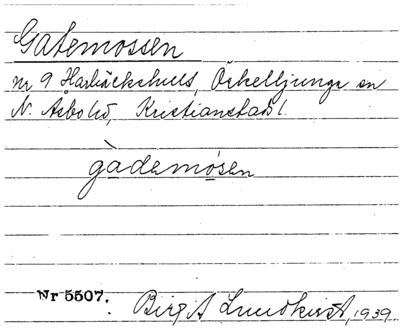 Gatemossen
nr 9 Harbäckshult, Örkelljunga sn
N. Åsbo hd, Kristianstads l.
gàdemòsen
Nr 5507.
Birgit Lundkvist, 1939.